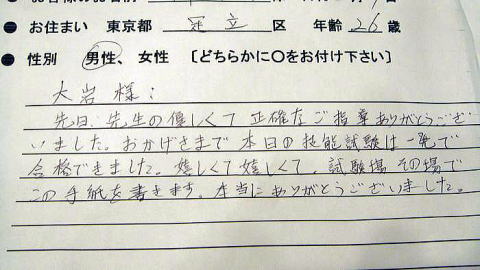 ● お住まい 東京都 足立 区 年齢 26 歳
● 性別 男性、女性 〔どちらかに〇をお付け下さい〕
大岩様:
先日、先生の優しくて正確なご指導ありがとうござ
いました。おかげさまで本日の技能試験は一発で
合格できました。嬉しくて嬉しくて、試験場その場で
この手紙を書きます。本当にありがとうございました。